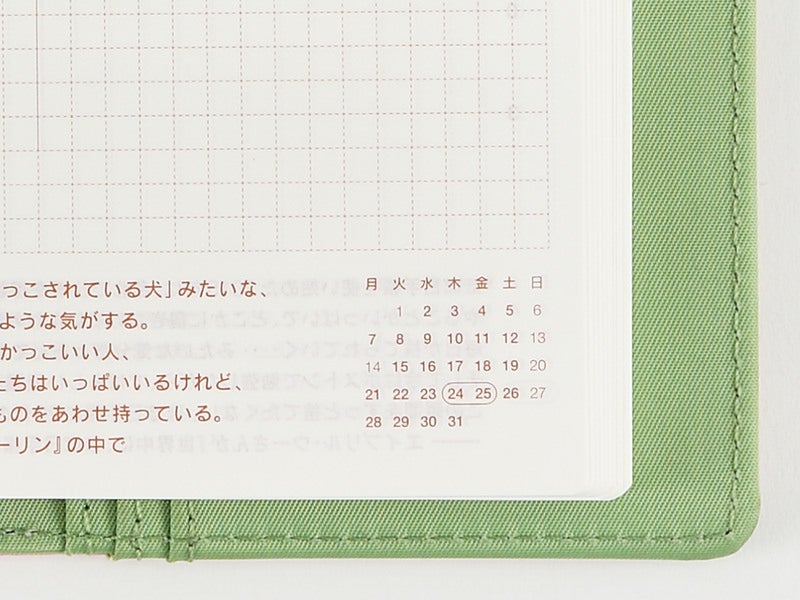 っこされている犬」みたいな、
ような気がする。
かっこいい人、
たちはいっぱいいるけれど、
ものをあわせ持っている。
ーリン』の中で
月 火 水 木 金 土 日
1 2 3 4 5 6
7 8 9 10 11 12 13
14 15 16 17 18 19 20
21 22 23 24 25 26 27
28 29 30 31